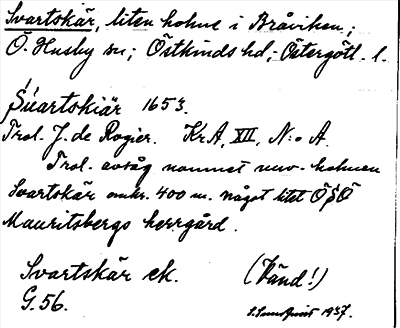 Svartskär, liten holme i Bråviken;
Ö. Husby sn; Östkinds hd; Östergötl. l.
Suartskiär 1653.
Trol. J. de Rogier. KrA, XII, N:o A.
Trol. avsåg namnet nuv. holmen
Svartskär omkr. 400 m. något litet ÖSÖ
Mauritsbergs herrgård.
Svartskär ek.
G. 56.
(Vänd!)
S. Sundqvist 1937.